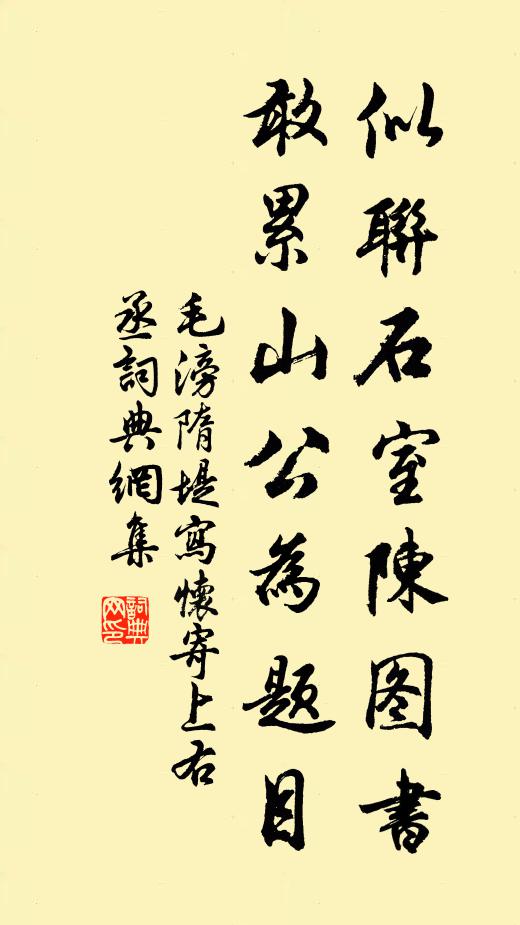 似聯石室陳图書
敢累山公為题目
毛滂隋堤寫懷寄上右
丞詞典網集
詞典
网印